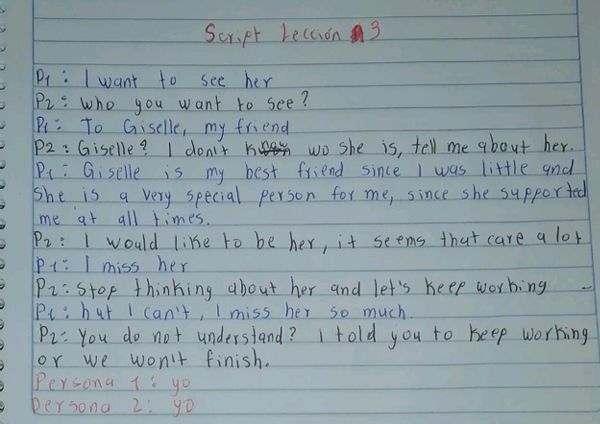 Script Lección 3
P1: I want to see her
P2: Who you want to see?
P1: To Giselle, my friend
P2: Giselle? I don't know wo she is, tell me about her.
P1: Giselle is my best friend since I was little and
She is a very special person for me, since she supported
me at all times.
P2: I would like to be her, it seems that care a lot
P1: I miss her
P2: Stop thinking about her and let's keep working
P1: but I can't, I miss her so much.
P2: You do not understand? I told you to keep working
or we won't finish.
Persona 1: yo
Persona 2: yo